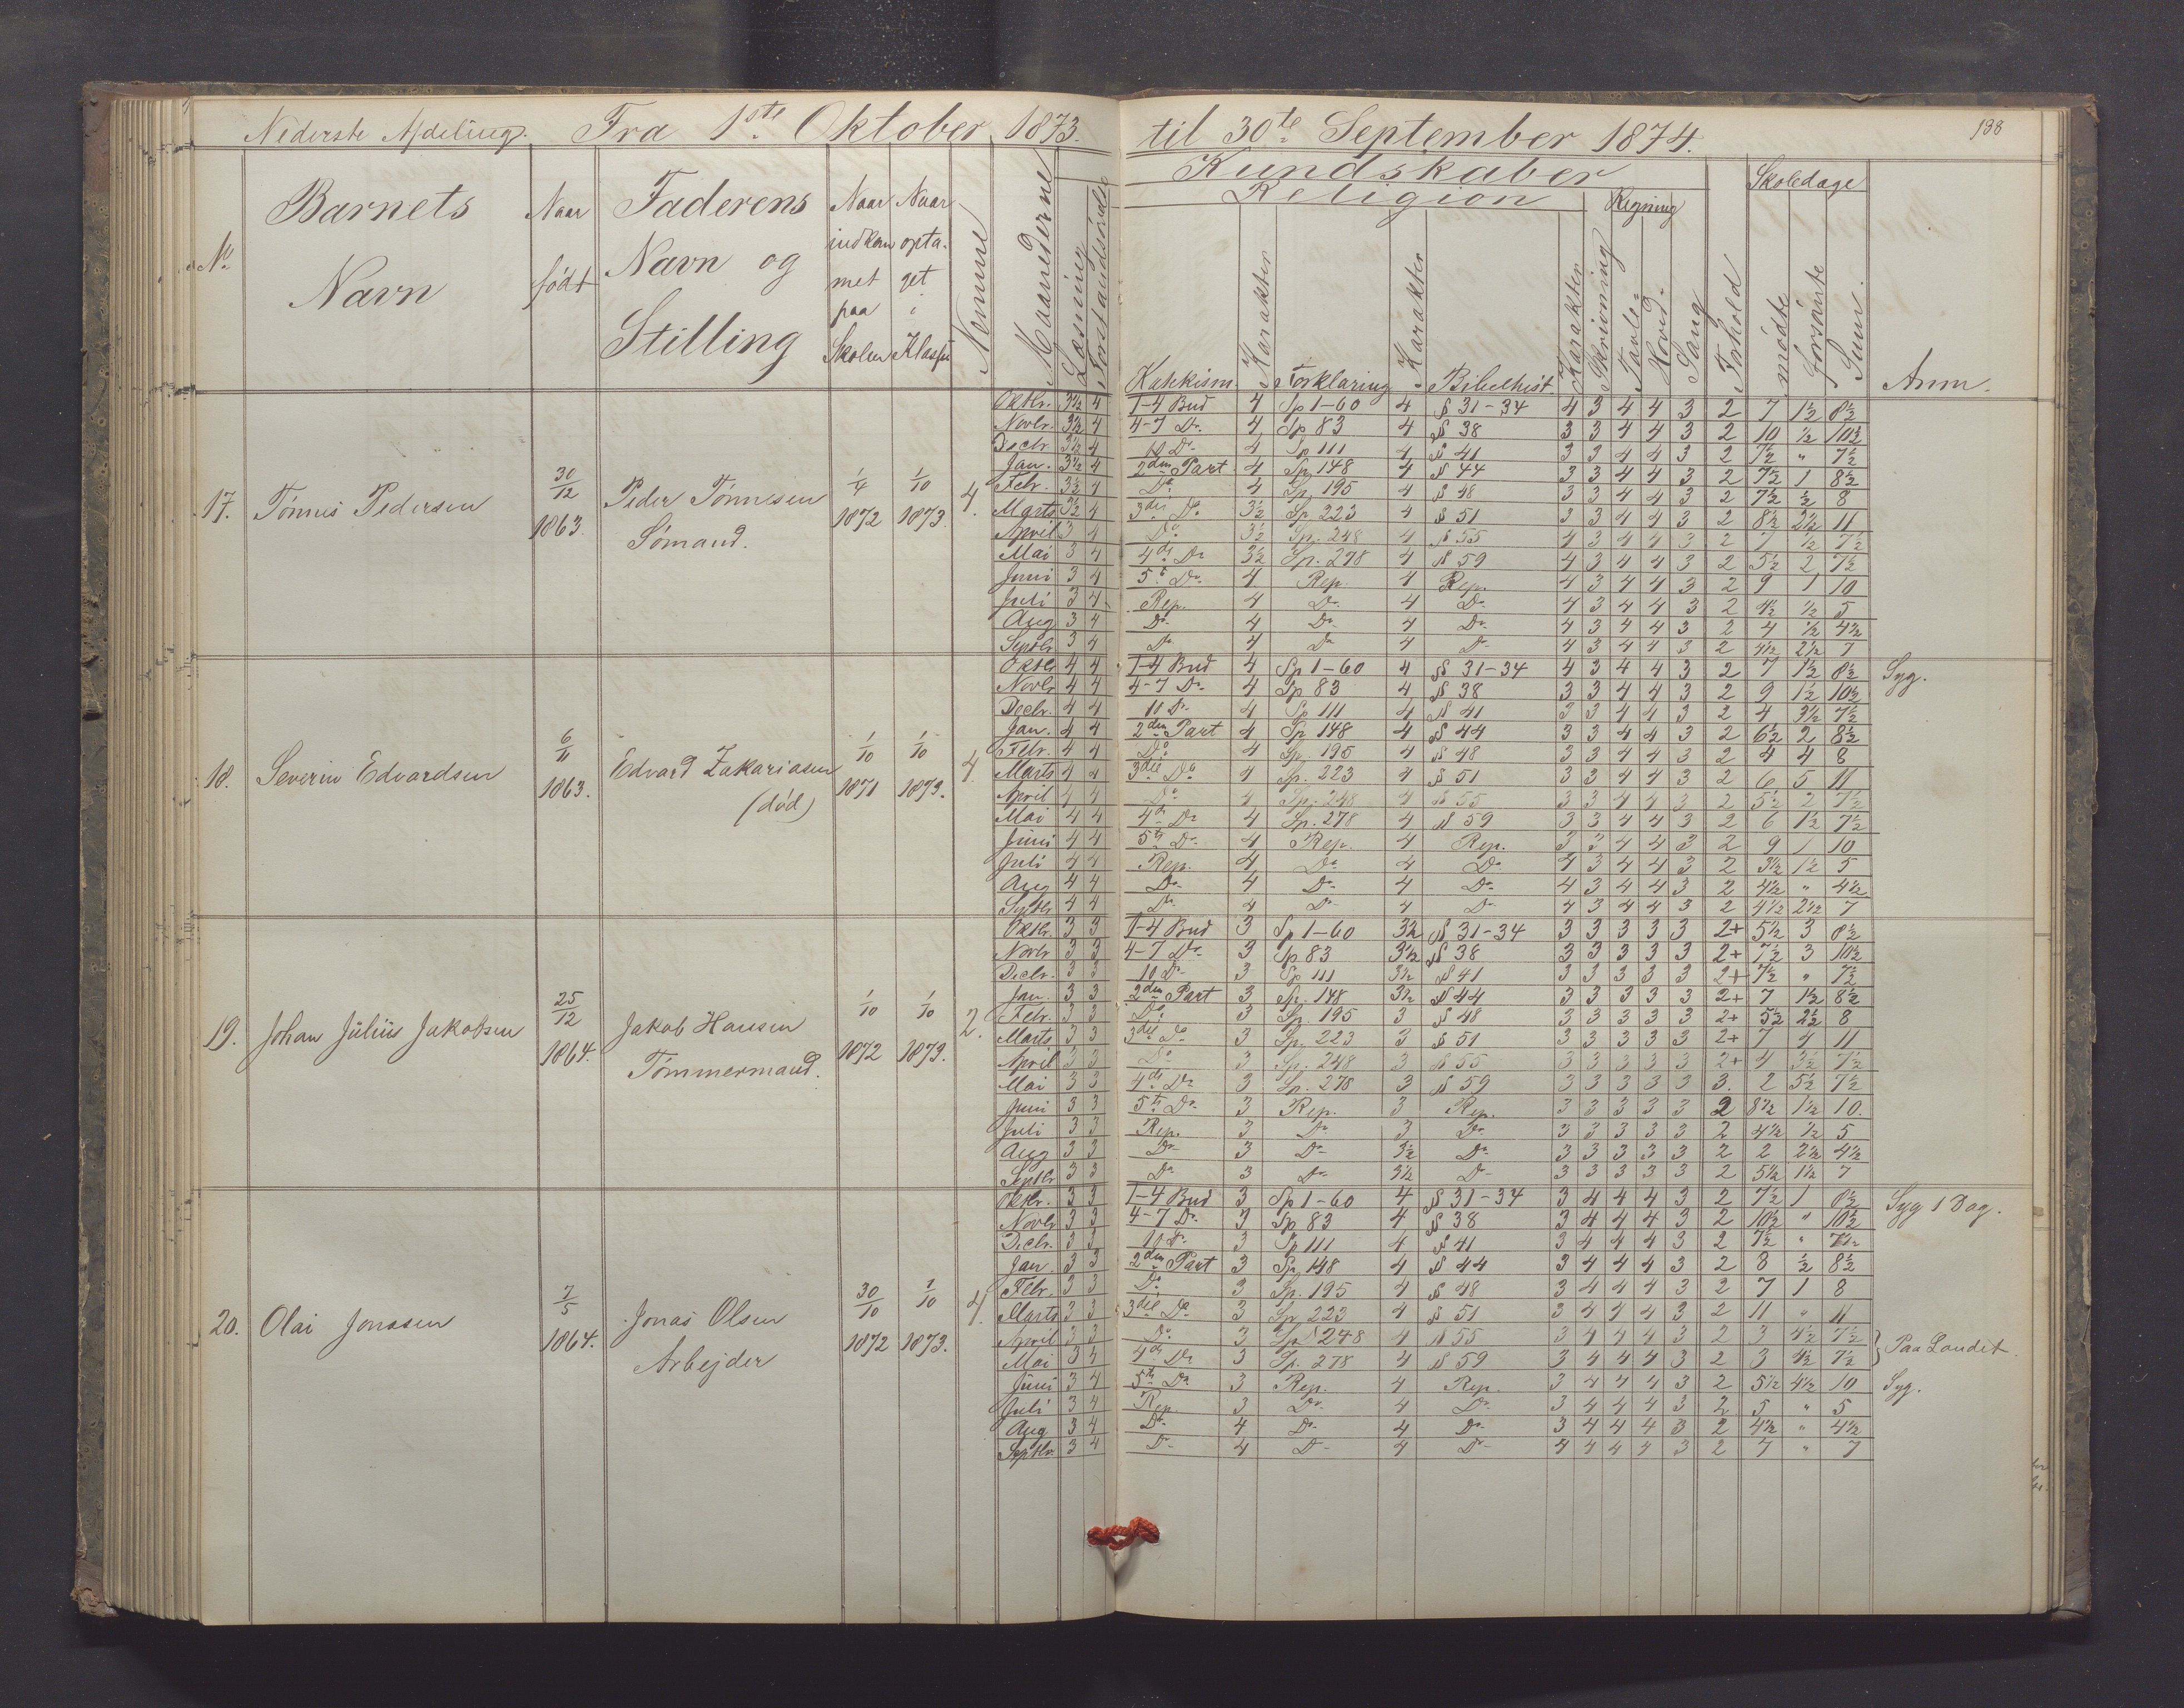 Nederste Afdeling. Fra 1ste Oktober 1873. til 30te September 1874. 138
Kundskaber
Religion Regning Skoledage
No. Barnets Navn Naar født Faderens Navn og Stilling Naar indkommet paa Skolen Naar optaget i Klassen Nemme Maanederne Læsning Forstandsøvelse Katekism. Karakter Forklaring Karakter Bibelhist. Karakter Skrivning Tavle- Hoved- Sang Forhold mødte forsømte Sum. Anm.
17. Tønnes Pedersen 30/12 1863. Peder Tønnesen Sømand. 1/4 1872 1/10 1873. 4.
Oktbr. 3½ 4 1-4 Bud 4 Sp 1-60 4 § 31-34 4 3 4 4 3 2 7 1½ 8½
Novbr. 3½ 4 4-7 Do. 4 Sp 83 4 § 38 3 3 4 4 3 2 10 ½ 10½
Decbr. 3½ 4 10 Do. 4 Sp 111 4 § 41 3 3 4 4 3 2 7½ " 7½
Jan. 3½ 4 2den Part 4 Sp. 148 4 § 44 3 3 4 4 3 2 7½ 1 8½
Febr. 3½ 4 Do. 4 Sp. 195 4 § 48 3 3 4 4 3 2 7½ ½ 8
Marts 3½ 4 3die Do. 3½ Sp. 223 4 § 51 3 3 4 4 3 2 8½ 2½ 11
April 3 4 Do. 3½ Sp. 248 4 § 55 4 3 4 4 3 2 7 ½ 7½
Mai 3 4 4de Do 3½ Sp. 278 4 § 59 4 3 4 4 3 2 5½ 2 7½
Juni 3 4 5te Do. 4 Rep. 4 Rep. 4 3 4 4 3 2 9 1 10
Juli 3 4 Rep. 4 Do. 4 Do. 4 3 4 4 3 2 4½ ½ 5
Aug 3 4 Do. 4 Do. 4 Do. 4 3 4 4 3 2 4 ½ 4½
Septbr 3 4 Do. 4 Do 4 Do. 4 3 4 4 3 2 4½ 2½ 7
18. Severin Edvardsen 6/11 1863. Edvard Zakariasen (død) 1/10 1871 1/10 1873. 4.
Oktbr 4 4 1-4 Bud 4 Sp 1-60 4 § 31-34 4 3 4 4 3 2 7 1½ 8½ Syg.
Novbr 4 4 4-7 Do. 4 Sp 83 4 § 38 3 3 4 4 3 2 9 1½ 10½
Decbr. 4 4 10 Do. 4 Sp 111 4 § 41 3 3 4 4 3 2 4 3½ 7½
Jan. 4 4 2den Part 4 Sp 148 4 § 44 3 3 4 4 3 2 6½ 2 8½
Febr. 4 4 Do. 4 Sp. 195 4 § 48 3 3 4 4 3 2 4 4 8
Marts 4 4 3die Do 4 Sp. 223 4 § 51 3 3 4 4 3 2 6 5 11
April 4 4 Do. 4 Sp. 248 4 § 55 3 3 4 4 3 2 5½ 2 7½
Mai 4 4 4de Do 4 Sp. 278 4 § 59 3 3 4 4 3 2 6 1½ 7½
Juni 4 4 5te Do. 4 Rep. 4 Rep. 3 3 4 4 3 2 9 1 10
Juli 4 4 Rep. 4 Do 4 Do. 4 3 4 4 3 2 3½ 1½ 5
Aug 4 4 Do. 4 Do. 4 Do. 4 3 4 4 3 2 4½ " 4½
Septbr 4 4 Do. 4 Do. 4 Do. 4 3 4 4 3 2 4½ 2½ 7
19. Johan Julius Jakobsen 25/12 1864. Jakob Hansen Tømmermand. 1/10 1872 1/10 1873. 2.
Oktbr. 3 3 1-4 Bud 3 Sp 1-60 3½ § 31-34 3 3 3 3 3 2+ 5½ 3 8½
Novbr 3 3 4-7 Do. 3 Sp 83 3½ § 38 3 3 3 3 3 2+ 7½ 3 10½
Decbr. 3 3 10 Do. 3 Sp 111 3½ § 41 3 3 3 3 3 2+ 7½ " 7½
Jan. 3 3 2den Part 3 Sp. 148 3½ § 44 3 3 3 3 3 2+ 7 1½ 8½
Febr. 3 3 Do. 3 Sp. 195 3 § 48 3 3 3 3 3 2+ 5½ 2½ 8
Marts 3 3 3die Do 3 Sp. 223 3 § 51 3 3 3 3 3 2+ 7 4 11
April 3 3 Do. 3 Sp. 248 3 § 55 3 3 3 3 3 2+ 4 3½ 7½
Mai 3 3 4de Do 3 Sp. 278 3 § 59 3 3 3 3 3 3. 2 5½ 7½
Juni 3 3 5te Do. 3 Rep. 3 Rep. 3 3 3 3 3 2 8½ 1½ 10.
Juli 3 3 Rep. 3 Do 3 Do. 3 3 3 3 3 2 4½ ½ 5
Aug 3 3 Do. 3 Do. 3½ Do. 3 3 3 3 3 2 2 2½ 4½
Septbr 3 3 Do. 3 Do. 3½ Do. 3 3 3 3 3 2 5½ 1½ 7
20. Olai Jonasen 7/5 1864. Jonas Olsen Arbejder 30/10 1872 1/10 1873. 4.
Oktbr. 3 3 1-4 Bud 3 Sp 1-60 4 § 31-34 3 4 4 4 3 2 7½ 1 8½ Syg 1 Dag.
Novbr 3 3 4-7 Do. 3 Sp 83 4 § 38 3 4 4 4 3 2 10½ " 10½
Decbr. 3 3 10 Do. 3 Sp 111 4 § 41 3 4 4 4 3 2 7½ " 7½
Jan. 3 3 2den Part 3 Sp. 148 4 § 44 3 4 4 4 3 2 8 ½ 8½
Febr. 3 3 Do. 3 Sp. 195 4 § 48 3 4 4 4 3 2 7 1 8
Marts 3 3 3die Do. 3 Sp 223 4 § 51 3 4 4 4 3 2 11 " 11
April 3 3 Do. 3 Sp. 248 4 § 55 3 4 4 4 3 2 3 4½ 7½
Mai 3 4 4de Do 3 Sp. 278 4 § 59 3 4 4 4 3 2 3 4½ 7½ } Paa Landet.
Juni 3 4 5te Do. 3 Rep. 4 Rep. 3 4 4 4 3 2 5½ 4½ 10 Syg.
Juli 3 4 Rep. 3 Do. 4 Do. 3 4 4 4 3 2 5 " 5
Aug 3 4 Do. 4 Do. 4 Do. 3 4 4 4 3 2 4½ " 4½
Septbr. 3 4 Do. 4 Do. 4 Do. 4 4 4 4 3 2 7 " 7